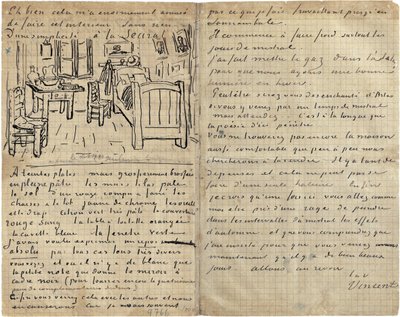 Eh bien cela m'a enormement amusé
de faire cet interieur sans rien
D'une simplicité à la Seurat.
A teintes plates mais grossierement brossées
en pleine pâte les murs lilas pale
le sol d'un rouge rompu & fané les
chaises & le lit jaune de chrome les oreillers
et le drap citron vert très pale la couverture
rouge sang la table à toilette orangée
la cuvette bleue la fenetre verte
J'avais voulu exprimer un repos
absolu par tous ces tons très divers
vous voyez et où il n'y a de blanc que
la petite note que donne le miroir à
cadre noir (pour fourrer encore la quatrième
paire de complementaires dedans).
Enfin vous verrez cela avec les autres et nous
en causerons car je ne sais souvent
pas ce que je fais travaillant presqu'en
somnambule.
Il commence à faire froid surtout les
jours de mistral
J'ai fait mettre le gaz dans l'atelier
pour que nous ayons une bonne
lumière en hiver.
Peutêtre serez vous désenchanté d'Arles
si vous y venez par un temps de mistral
mais attendez.. C'est à la longue que
la poésie d'ici pénètre.
Vous ne trouverez pas encore la maison
aussi comfortable que peu à peu nous
chercherons à la rendre. Il y a tant de
dépenses et cela ne peut pas se
faire d'une seule haleine. Enfin
je crois qu'une fois ici vous allez comme
moi être pris d'une rage de peindre
dans les intervalles du mistral les effets
d'automne et que vous comprendrez que
j'aie insisté pour que vous veniez
maintenant qu'il y a de bien beaux
jours. allons au revoir
t. à v.
Vincent